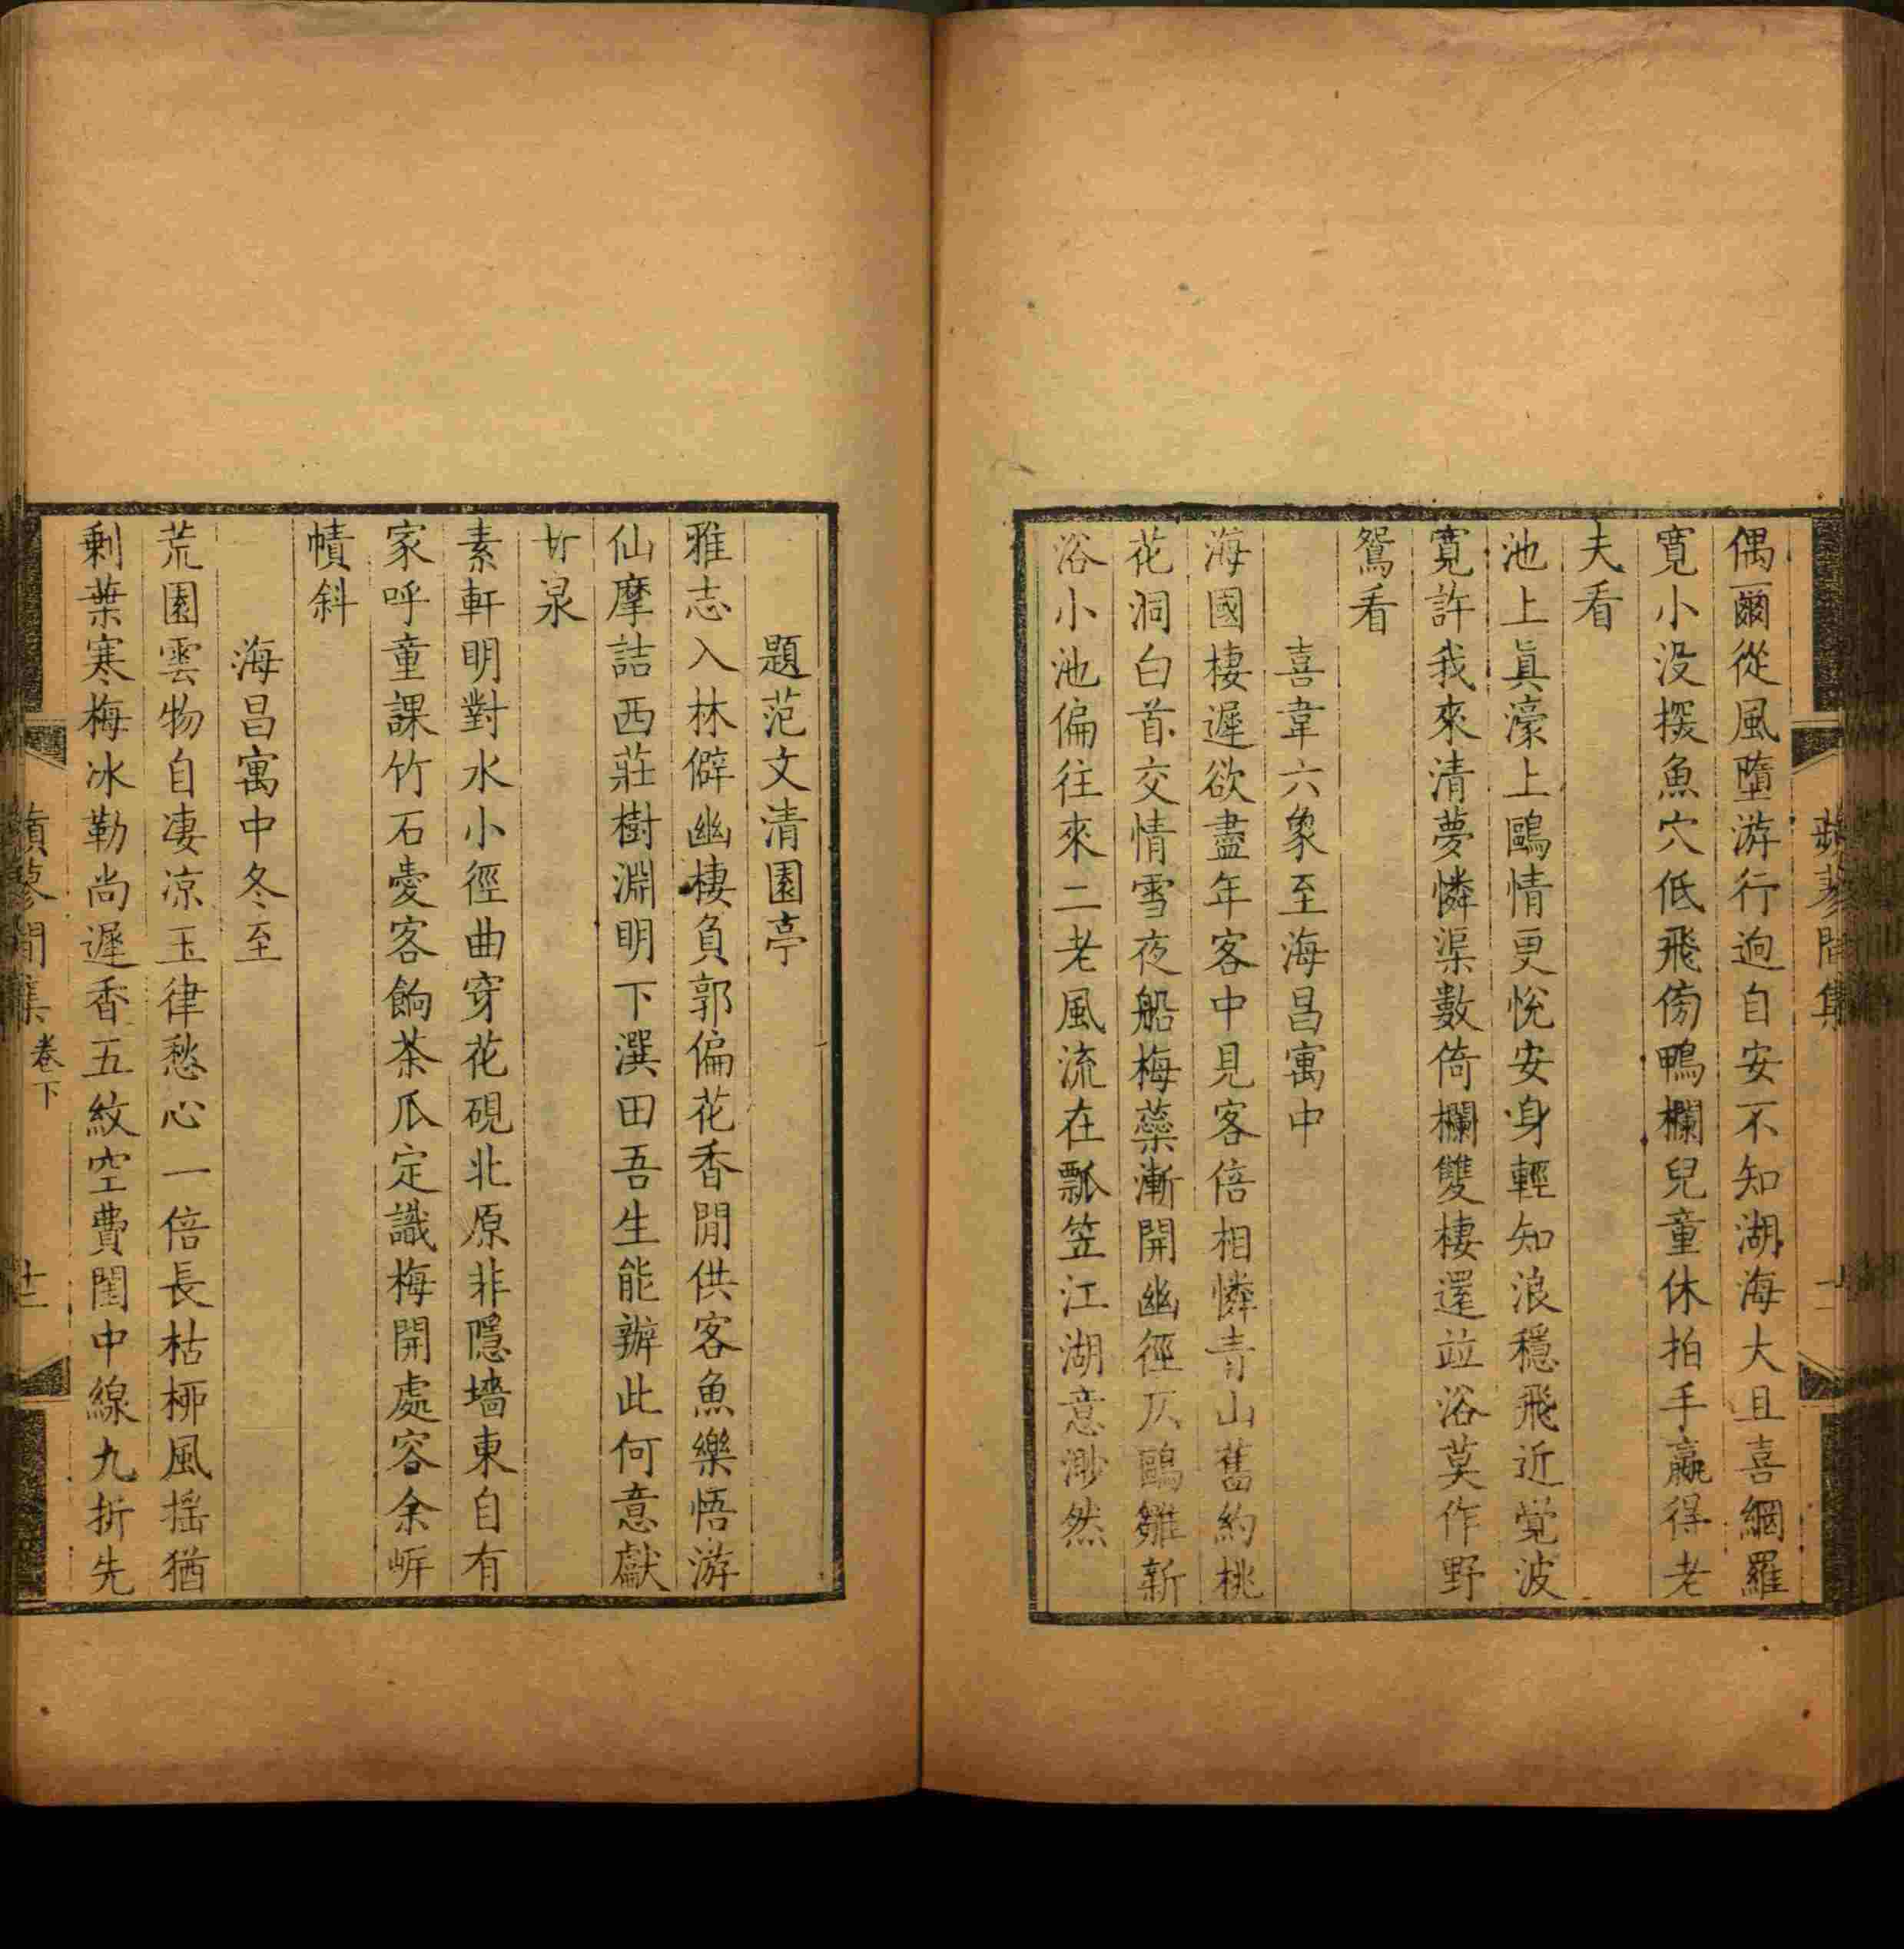 偶爾從風墮游行逈自安不知湖海大且喜網羅
寬小没探魚穴低飛傍鴨欄兒童休拍手贏得老
夫看
池上眞濠上鷗情更悅安身輕知浪穩飛近覺波
寬許我來清夢憐渠數倚欄雙棲還竝浴莫作野
鴛看
喜韋六象至海昌寓中
海國棲遲欲盡年客中見客倍相憐青山舊約桃
花洞白首交情雪夜船梅蘂漸開幽徑仄鷗雛新
浴小池偏往來二老風流在瓢笠江湖意渺然
題范文清園亭
雅志入林僻幽棲負郭偏花香閒供客魚樂悟游
仙摩詰西莊樹淵明下潠田吾生能辦此何意獻
廿泉
素軒明對水小徑曲穿花硯北原非隱墻東自有
家呼童課竹石愛客餉茶瓜定識梅開處容余岸
幘斜
海昌寓中冬至
荒園雲物自凄凉玉律愁心一倍長枯桺風揺猶
剩葉寒梅冰勒尚遲香五紋空費閨中線九折先
蓼閒集 卷下